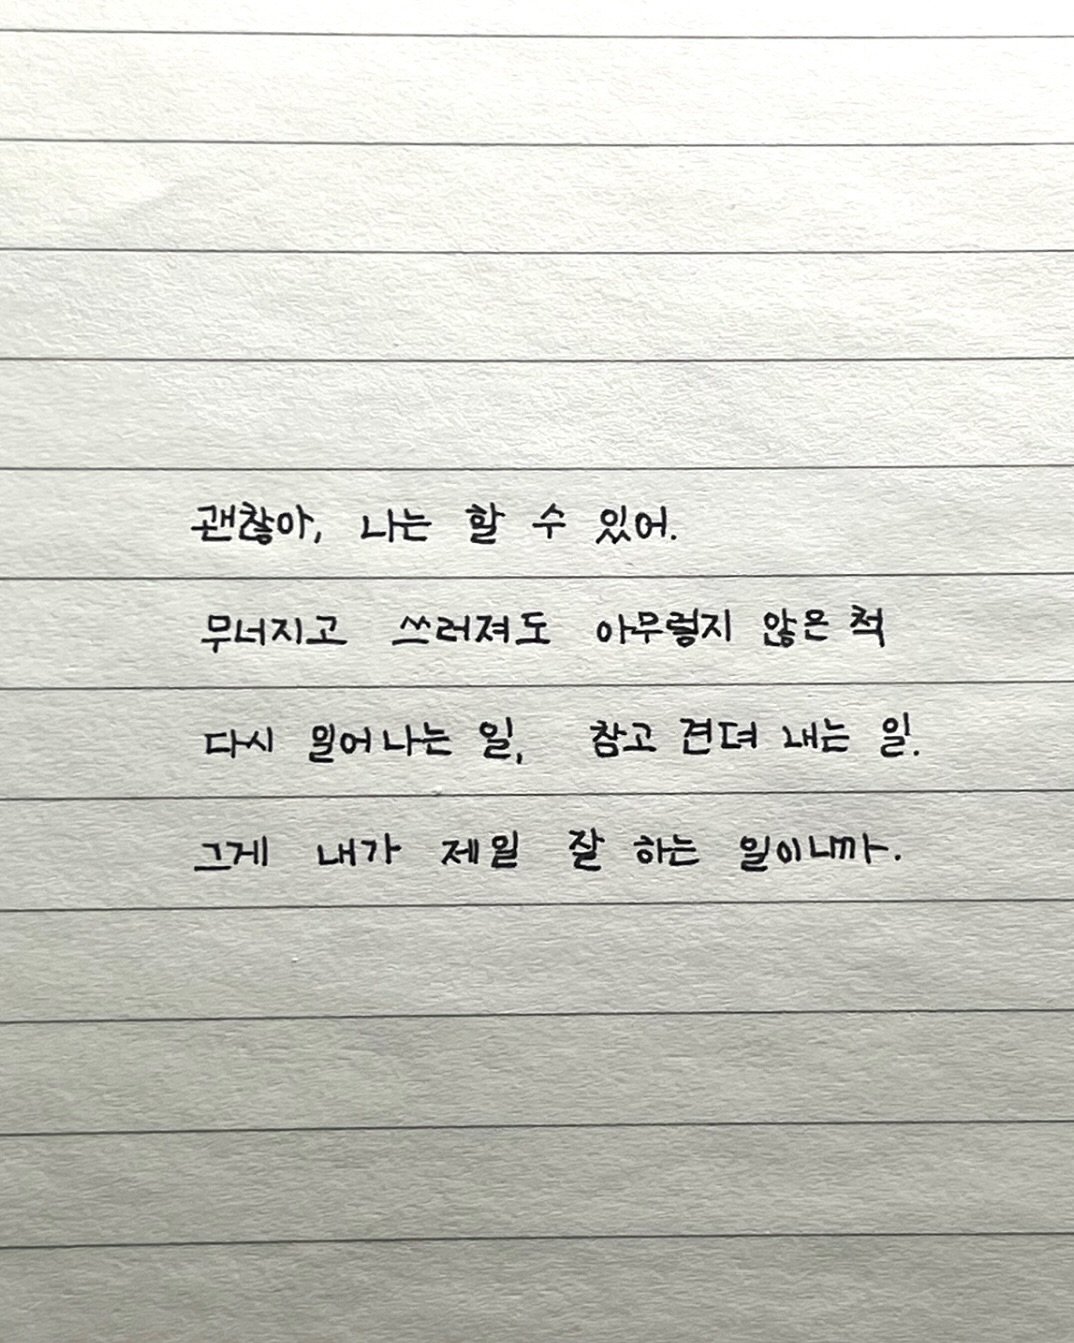 괜찮아, 나는 할 수 있어.
무너지고 쓰러져도 아무렇지 않은 척
다시 일어나는 일, 참고 견뎌 내는 일.
그게 내가 제일 잘 하는 일이니까.